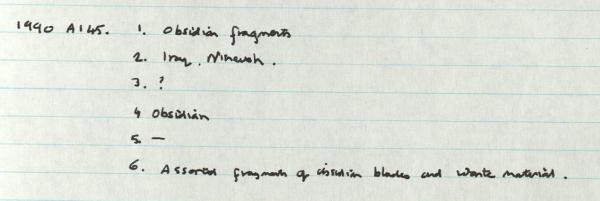 1990 A145. 1. Obsidian fragments
2. Iraq, Nineveh.
3. ?
4 Obsidian
5. —
6. Assorted fragments of obsidian blades and waste material.